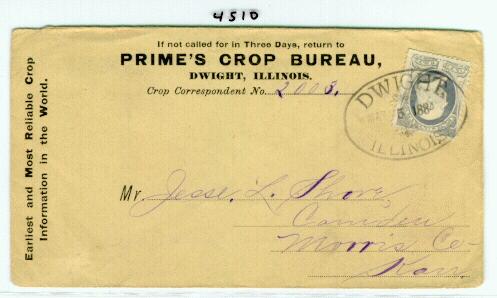 4510
If not called for in Three Days, return to
PRIME'S CROP BUREAU,
DWIGHT, ILLINOIS.
Crop Correspondent No. 2003.
DWIGHT
1884
ILLINOIS
Earliest and Most Reliable Crop
Information in the World.
Mr. Jesse. L. Shore,
Camden
Morris Co
Kan.